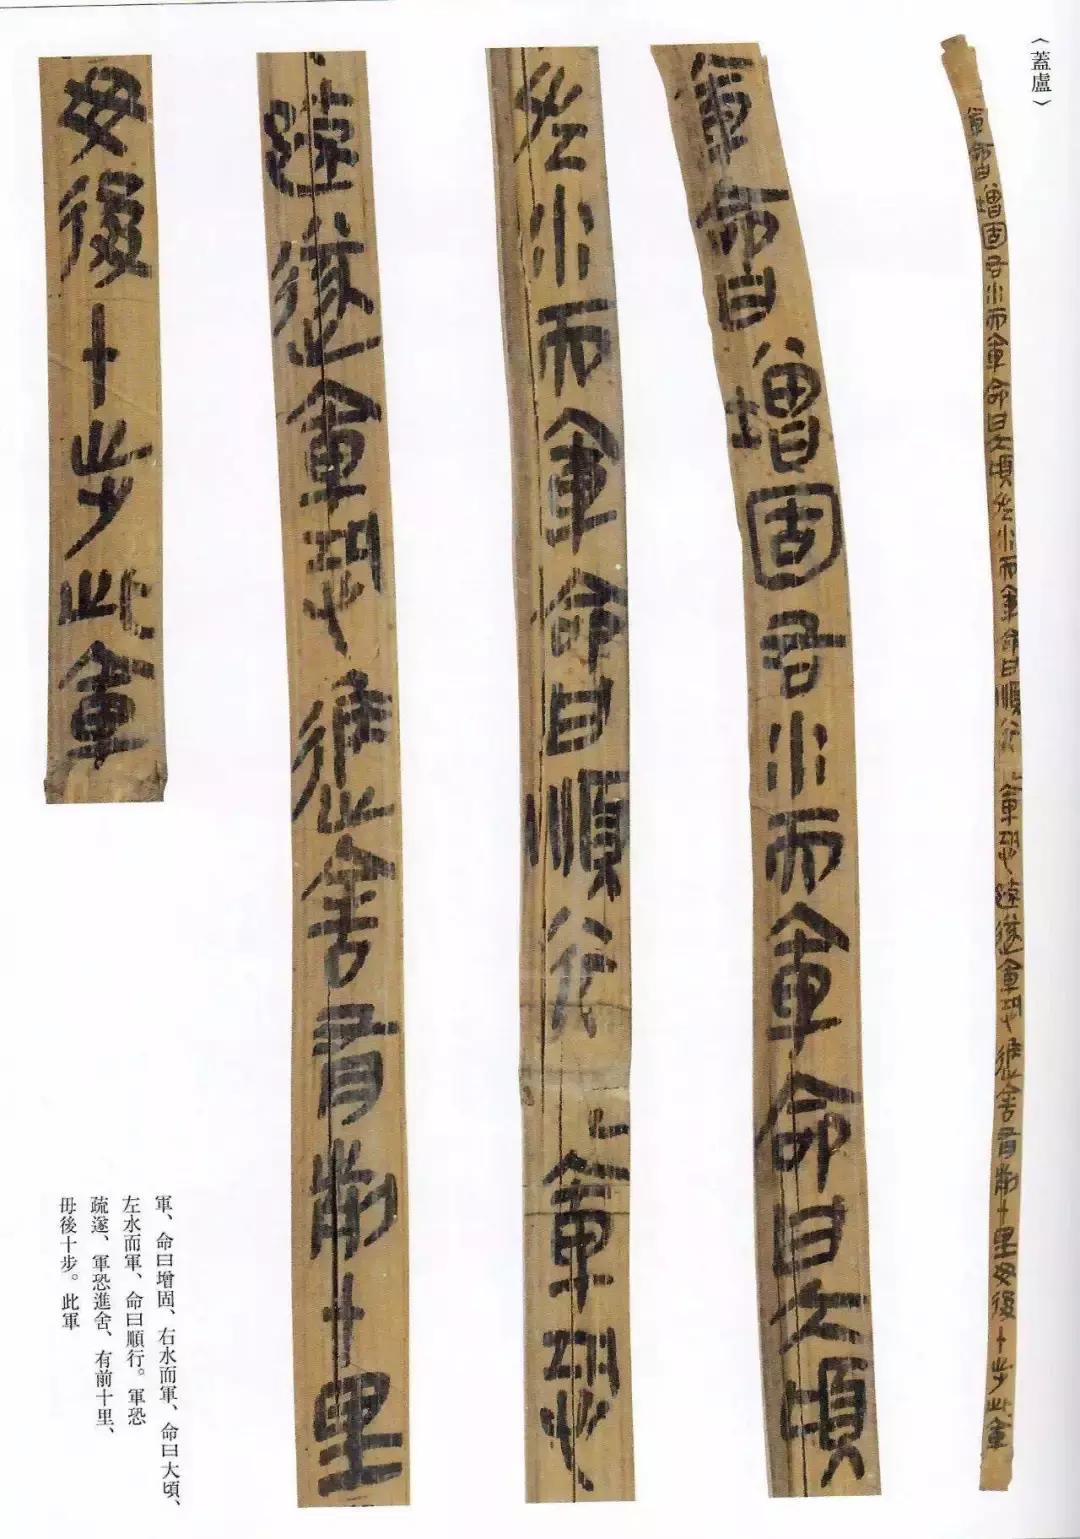 〈蓋盧〉
軍命曰增固右水而軍命曰大頃左水而軍命曰順行軍恐疏遂軍恐進舍有前十里毋後十步此軍
軍命曰增固右水而軍命曰大頃
左水而軍命曰順行軍恐
疏遂軍恐進舍有前十里
毋後十步此軍
軍、命曰增固、右水而軍、命曰大頃、
左水而軍、命曰順行。軍恐
疏遂、軍恐進舍、有前十里、
毋後十步。此軍